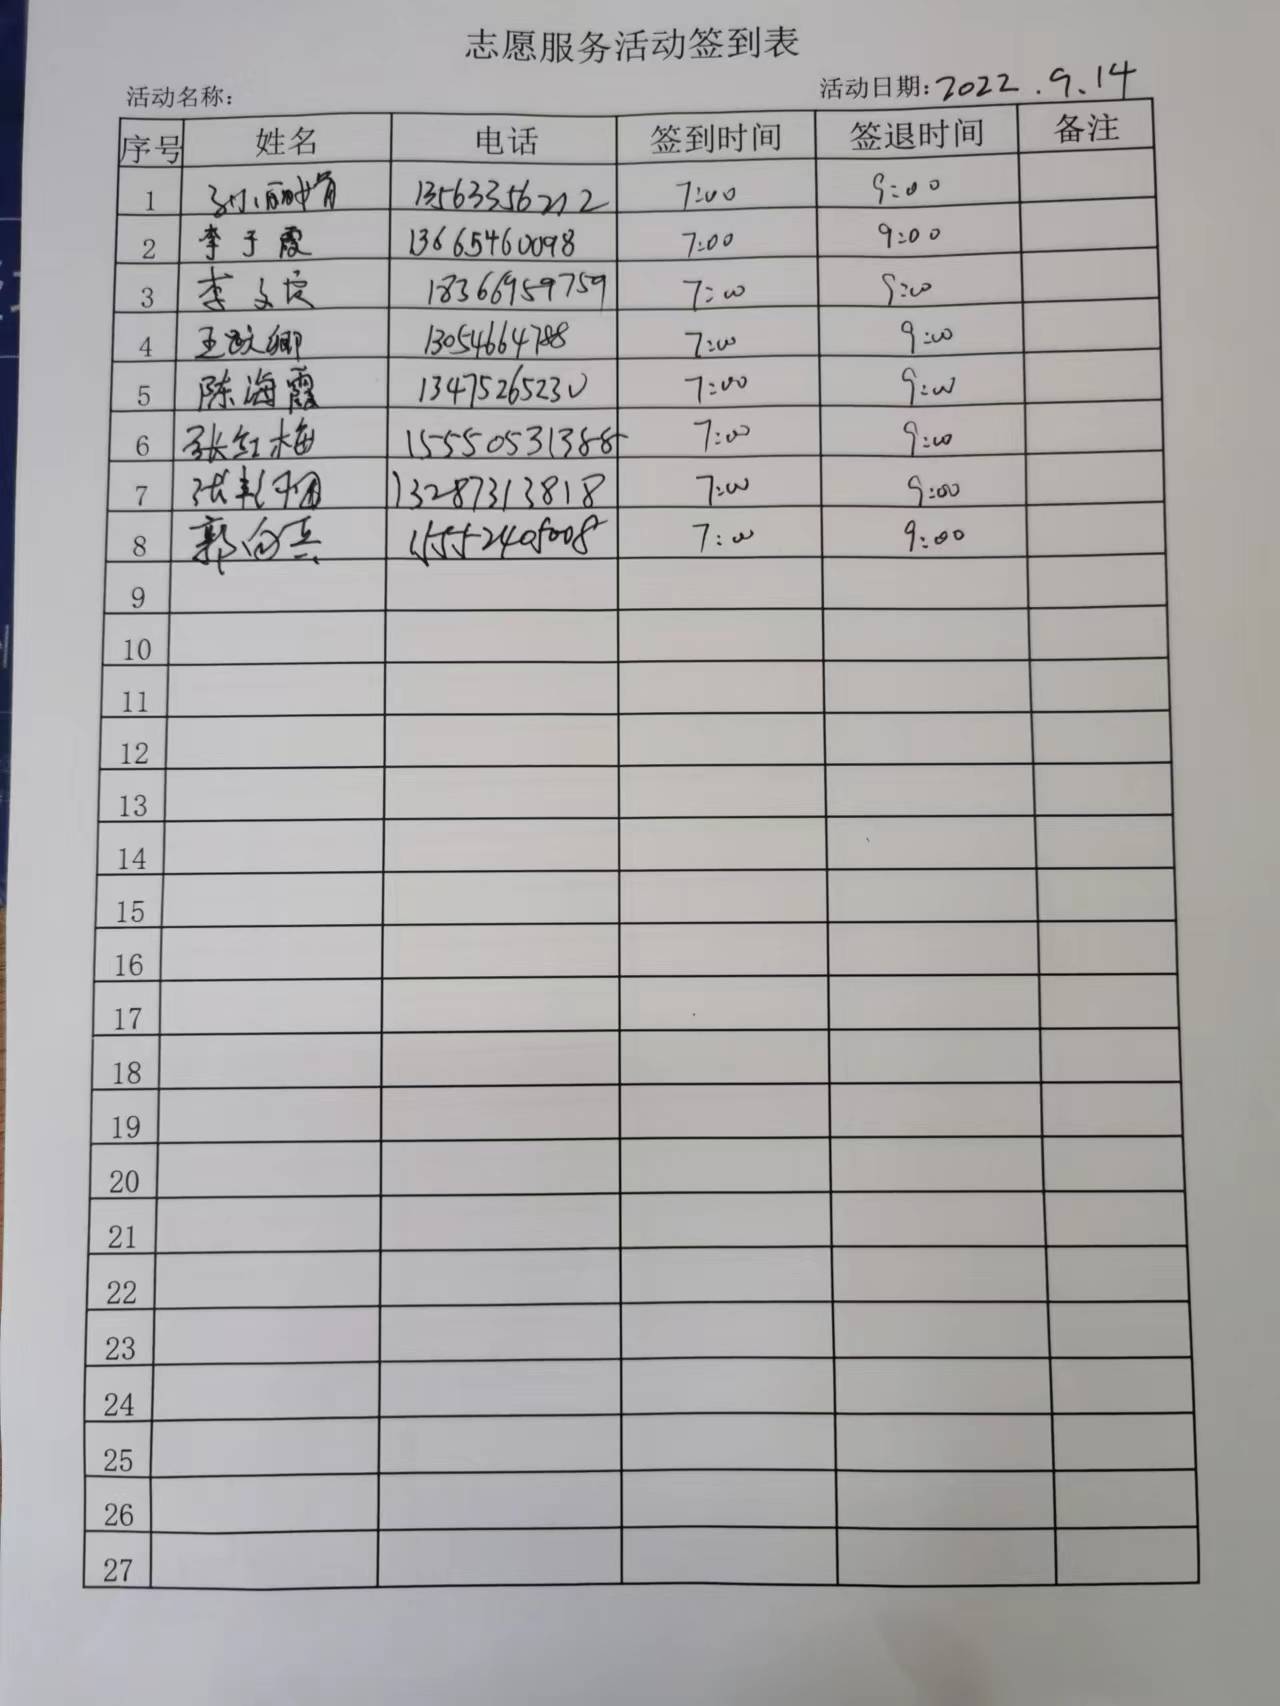 志愿服务活动签到表
活动名称: 活动日期: 2022.9.14
序号 姓名 电话 签到时间 签退时间 备注
1 孙丽娟 13563356212 7:00 9:00
2 李于霞 13665460098 7:00 9:00
3 李文 18366959759 7:00 9:00
4 王 卿 13054664788 7:00 9:00
5 陈海霞 13475265230 7:00 9:00
6 张红梅 15550531388 7:00 9:00
7 张 13287313818 7:00 9:00
8 郭向兵 15552405008 7:00 9:00
9
10
11
12
13
14
15
16
17
18
19
20
21
22
23
24
25
26
27